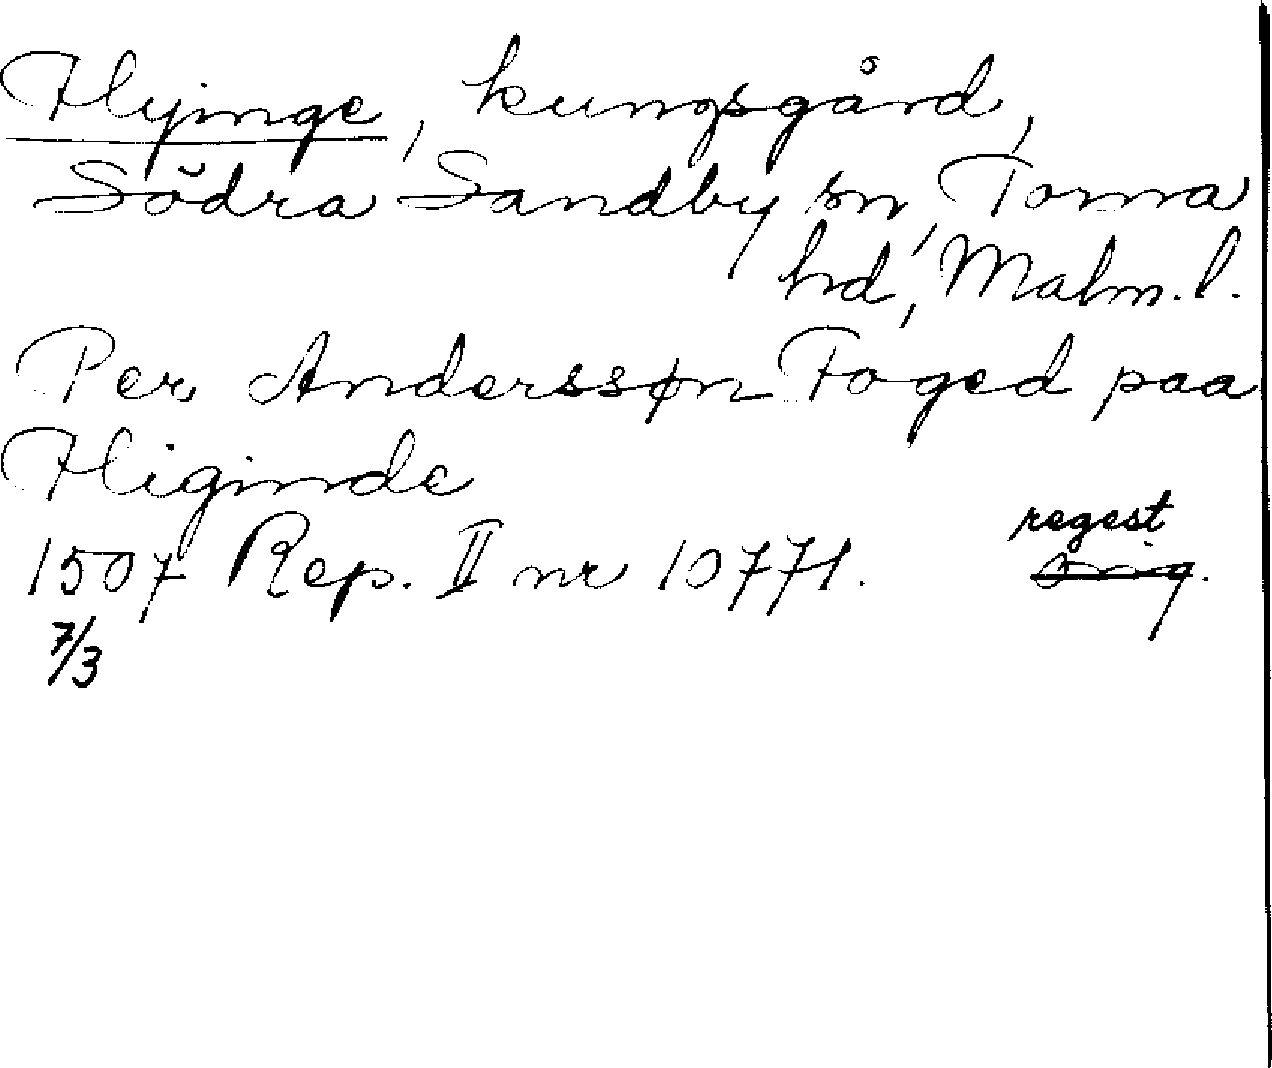 Flyinge, kungsgård,
Södra Sandby sn, Torna
hd, Malm.l.
Per Anderssøn Foged paa
Fliginde
regest
1507 Rep. II nr 10771. orig.
7/3